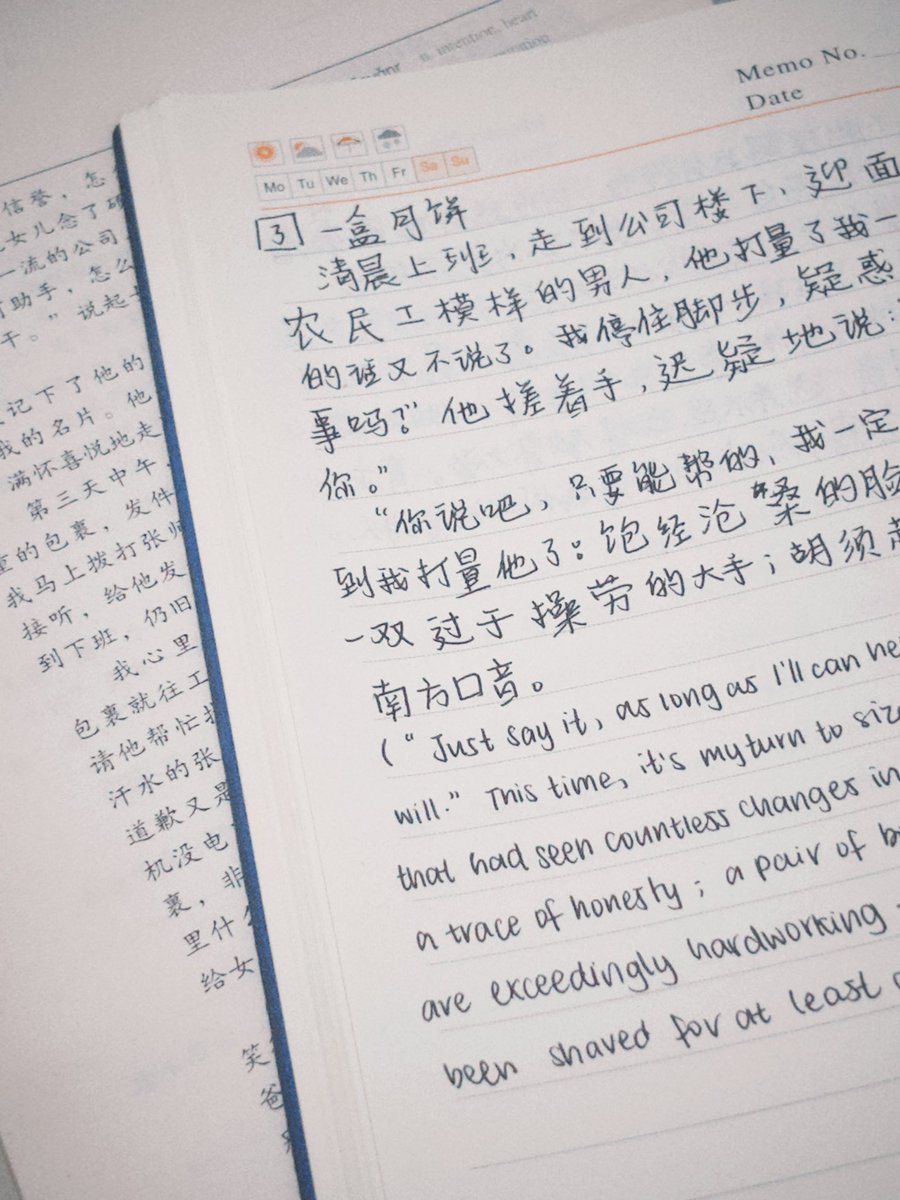 n. intention, heart
Memo No.
Date
Mo Tu We Th Fr Sa Su
3 一盒月饼
清晨上班，走到公司楼下，迎面
农民工模样的男人，他打量了我一
的话又不说了。我停住脚步，疑惑
事吗？” 他搓着手，迟疑地说：
你。”
“你说吧，只要能帮的，我一定
到我打量他了：饱经沧桑的脸
一双过于操劳的大手；胡须
南方口音。
(“Just say it, as long as I'll can he
will.” This time, it's my turn to siz
that had seen countless changes in
a trace of honesty; a pair of bi
are exceedingly hardworking
been shaved for at least
信誉，怎
女儿念了硕
一流的公司
助手，怎么
干。” 说起
记下了他的
我的名片。他
满怀喜悦地走
第三天中午
重的包裹，发件
我马上拨打张师
接听，给他发
到下班，仍旧
我心里
包裹就往工
请他帮忙
汗水的张
道歉又是
机没电
裹，非
里什么
给女
笑
爸